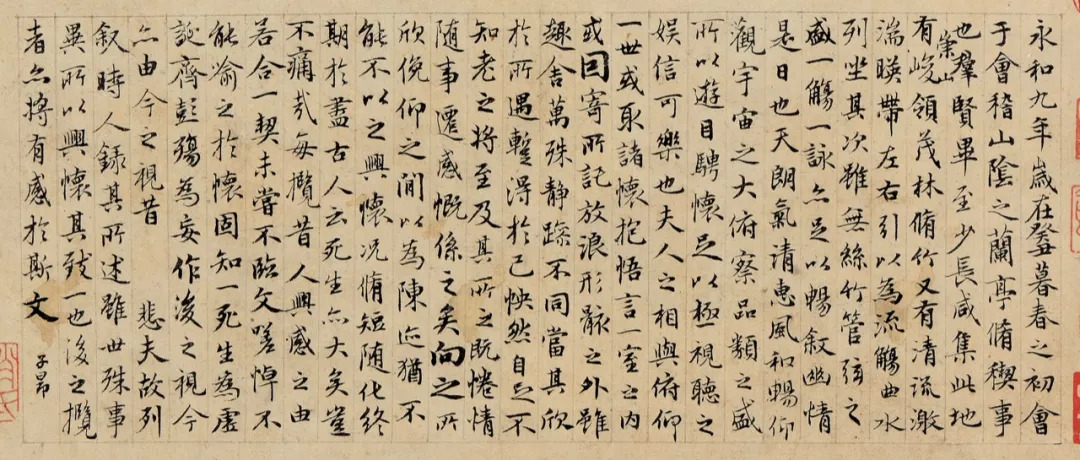 永和九年歲在癸丑暮春之初會
于會稽山陰之蘭亭脩稧事
也羣賢畢至少長咸集此地
有崇山峻領茂林脩竹又有清流激
湍暎帶左右引以為流觴曲水
列坐其次雖無絲竹管弦之
盛一觴一詠亦足以暢叙幽情
是日也天朗氣清惠風和暢仰
觀宇宙之大俯察品類之盛
所以遊目騁懷足以極視聽之
娛信可樂也夫人之相與俯仰
一世或取諸懷抱悟言一室之內
或因寄所託放浪形骸之外雖
趣舍萬殊靜躁不同當其欣
於所遇蹔得於己怏然自足不
知老之將至及其所之既惓情
隨事遷感慨係之矣向之所
欣俛仰之閒以為陳迹猶不
能不以之興懷況脩短隨化終
期於盡古人云死生亦大矣豈
不痛哉每攬昔人興感之由
若合一契未嘗不臨文嗟悼不
能喻之於懷固知一死生為虛
誕齊彭殤為妄作後之視今
亦由今之視昔 悲夫故列
叙時人錄其所述雖世殊事
異所以興懷其致一也後之攬
者亦將有感於斯文
子昂